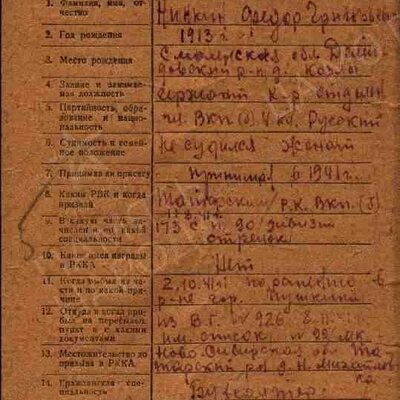 1. Фамилия, имя, от-
чество
Федор Григорьевич
2. Год рождения
1913 г.
3. Место рождения
Смоленская обл Деми-
довский р-н д. Козлы
4. Звание и занимае-
мая должность
сержант к-р отделен
5. Партийность, обра-
зование и нацио-
нальность
чл. ВКП(б) 4 кл. Русский
6. Судимость и семей-
ное положение
Не судился женат
7. Принимал ли присягу
принимал в 1941 г.
8. Каким РВК и когда
призван
Татарским Р.К. ВКП(б)
9. В какую часть за-
числен и по какой
специальности
173 с.п. 90 дивизии
стрелок
10. Какие имел награды
в РККА
Нет
11. Когда выбыл из ча-
сти и по какой при-
чине
2.10.41 г. по ранению в
р-не гор. Пушкина
12. Откуда и когда при-
был на пересыльн.
пункт и с какими
документами
из В.Г. № 926
им. список № 99
13. Местожительство до
призыва в РККА
Ново-Сибирская обл Та-
тарский р-н
14. Гражданская спе-
циальность
Бухгалтер